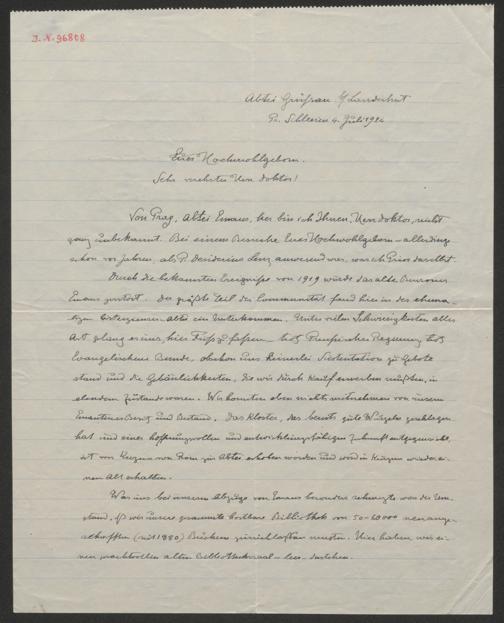 I.N. 96808
Abtei Grüssau b/Landeshut
Pr. Schlesien 4. Juli 1924
Euer Hochwohlgeborn.
Sehr verehrter Herr Doktor!
Von Prag, Abtei Emaus, her bin ich Ihnen, Herr Doktor, nicht
ganz unbekannt. Bei einem Besuche Euer Hochwohlgeborn – allerdings
schon vor Jahren, als P. Desiderius Lenz anwesend war, war ich Prior daselbst.
Durch die bekannten Ereignisse von 1919 wurde das alte Beuroner
Emaus zerstört. Der größte Teil der Communität fand hier in der ehema-
ligen Cisterzienser Abtei ein Unterkommen. Unter vielen Schwierigkeiten aller
Art gelang es uns, hier Fuß zu fassen trotz Preussischer Regierung trotz
Evangelischem Bunde, obschon uns keinerlei zu Gebote
stand und die Gebäulichkeiten, die wir durch Kauf erwerben mußten, in
elendem Zustande waren. Wir konnten eben nichts mitnehmen von unserem
Emautiner Besitz und Bestand. Das Kloster, das bereits gute Wurzeln geschlagen
hat und einer hoffnungsvollen und entwicklungsfähigen Zukunft entgegensieht,
ist vor Kurzem von Rom zur Abtei erhoben worden und wird in Kürze wieder ei-
nen Abt erhalten.
Was uns bei unserem Abzuge von Emaus besonders schmerzte war der Um-
stand, daß wir unsere gesammte kostbare Bibliothek von 50-60000 neu ange-
schafften (seit 1880) Büchern zurücklassen mussten. Hier haben wir ei-
nen prachtvollen alten Bibliotheksaal – leer – dastehen.